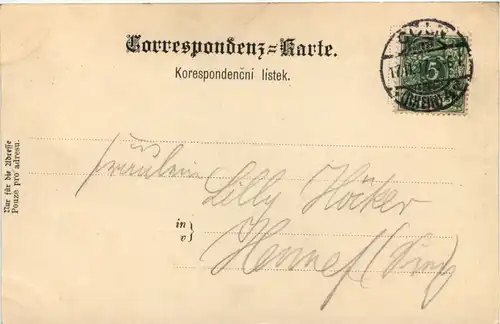 Correspondenz-Karte.
Korespondenční lístek.
5
Nur für die Adresse
Pouze pro adresu.
Fräulein
Lilly Höcker
in
v
Hennef (Sieg)